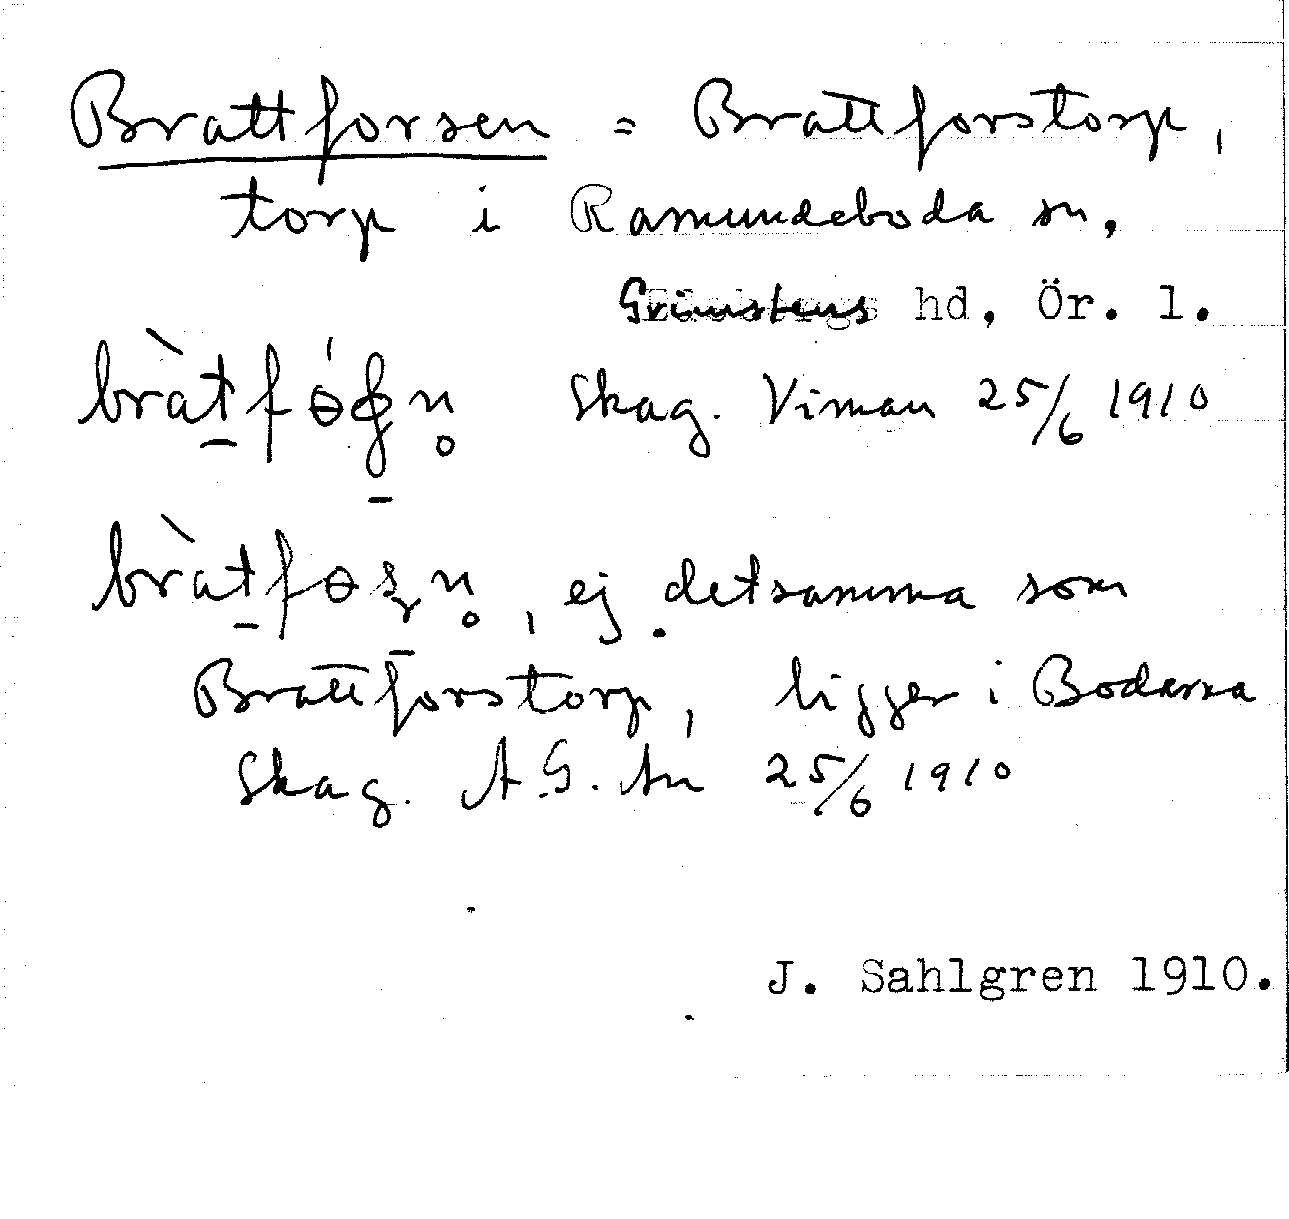 Brattforsen = Brattforstorp,
torp i Ramundeboda sn,
Grimstens hd, Ör. l.
Skag. Viman 25/6 1910
, ej detsamma som
Brattforstorp, ligger i Bodarna
Skag. A.G. 25/6 1910
J. Sahlgren 1910.